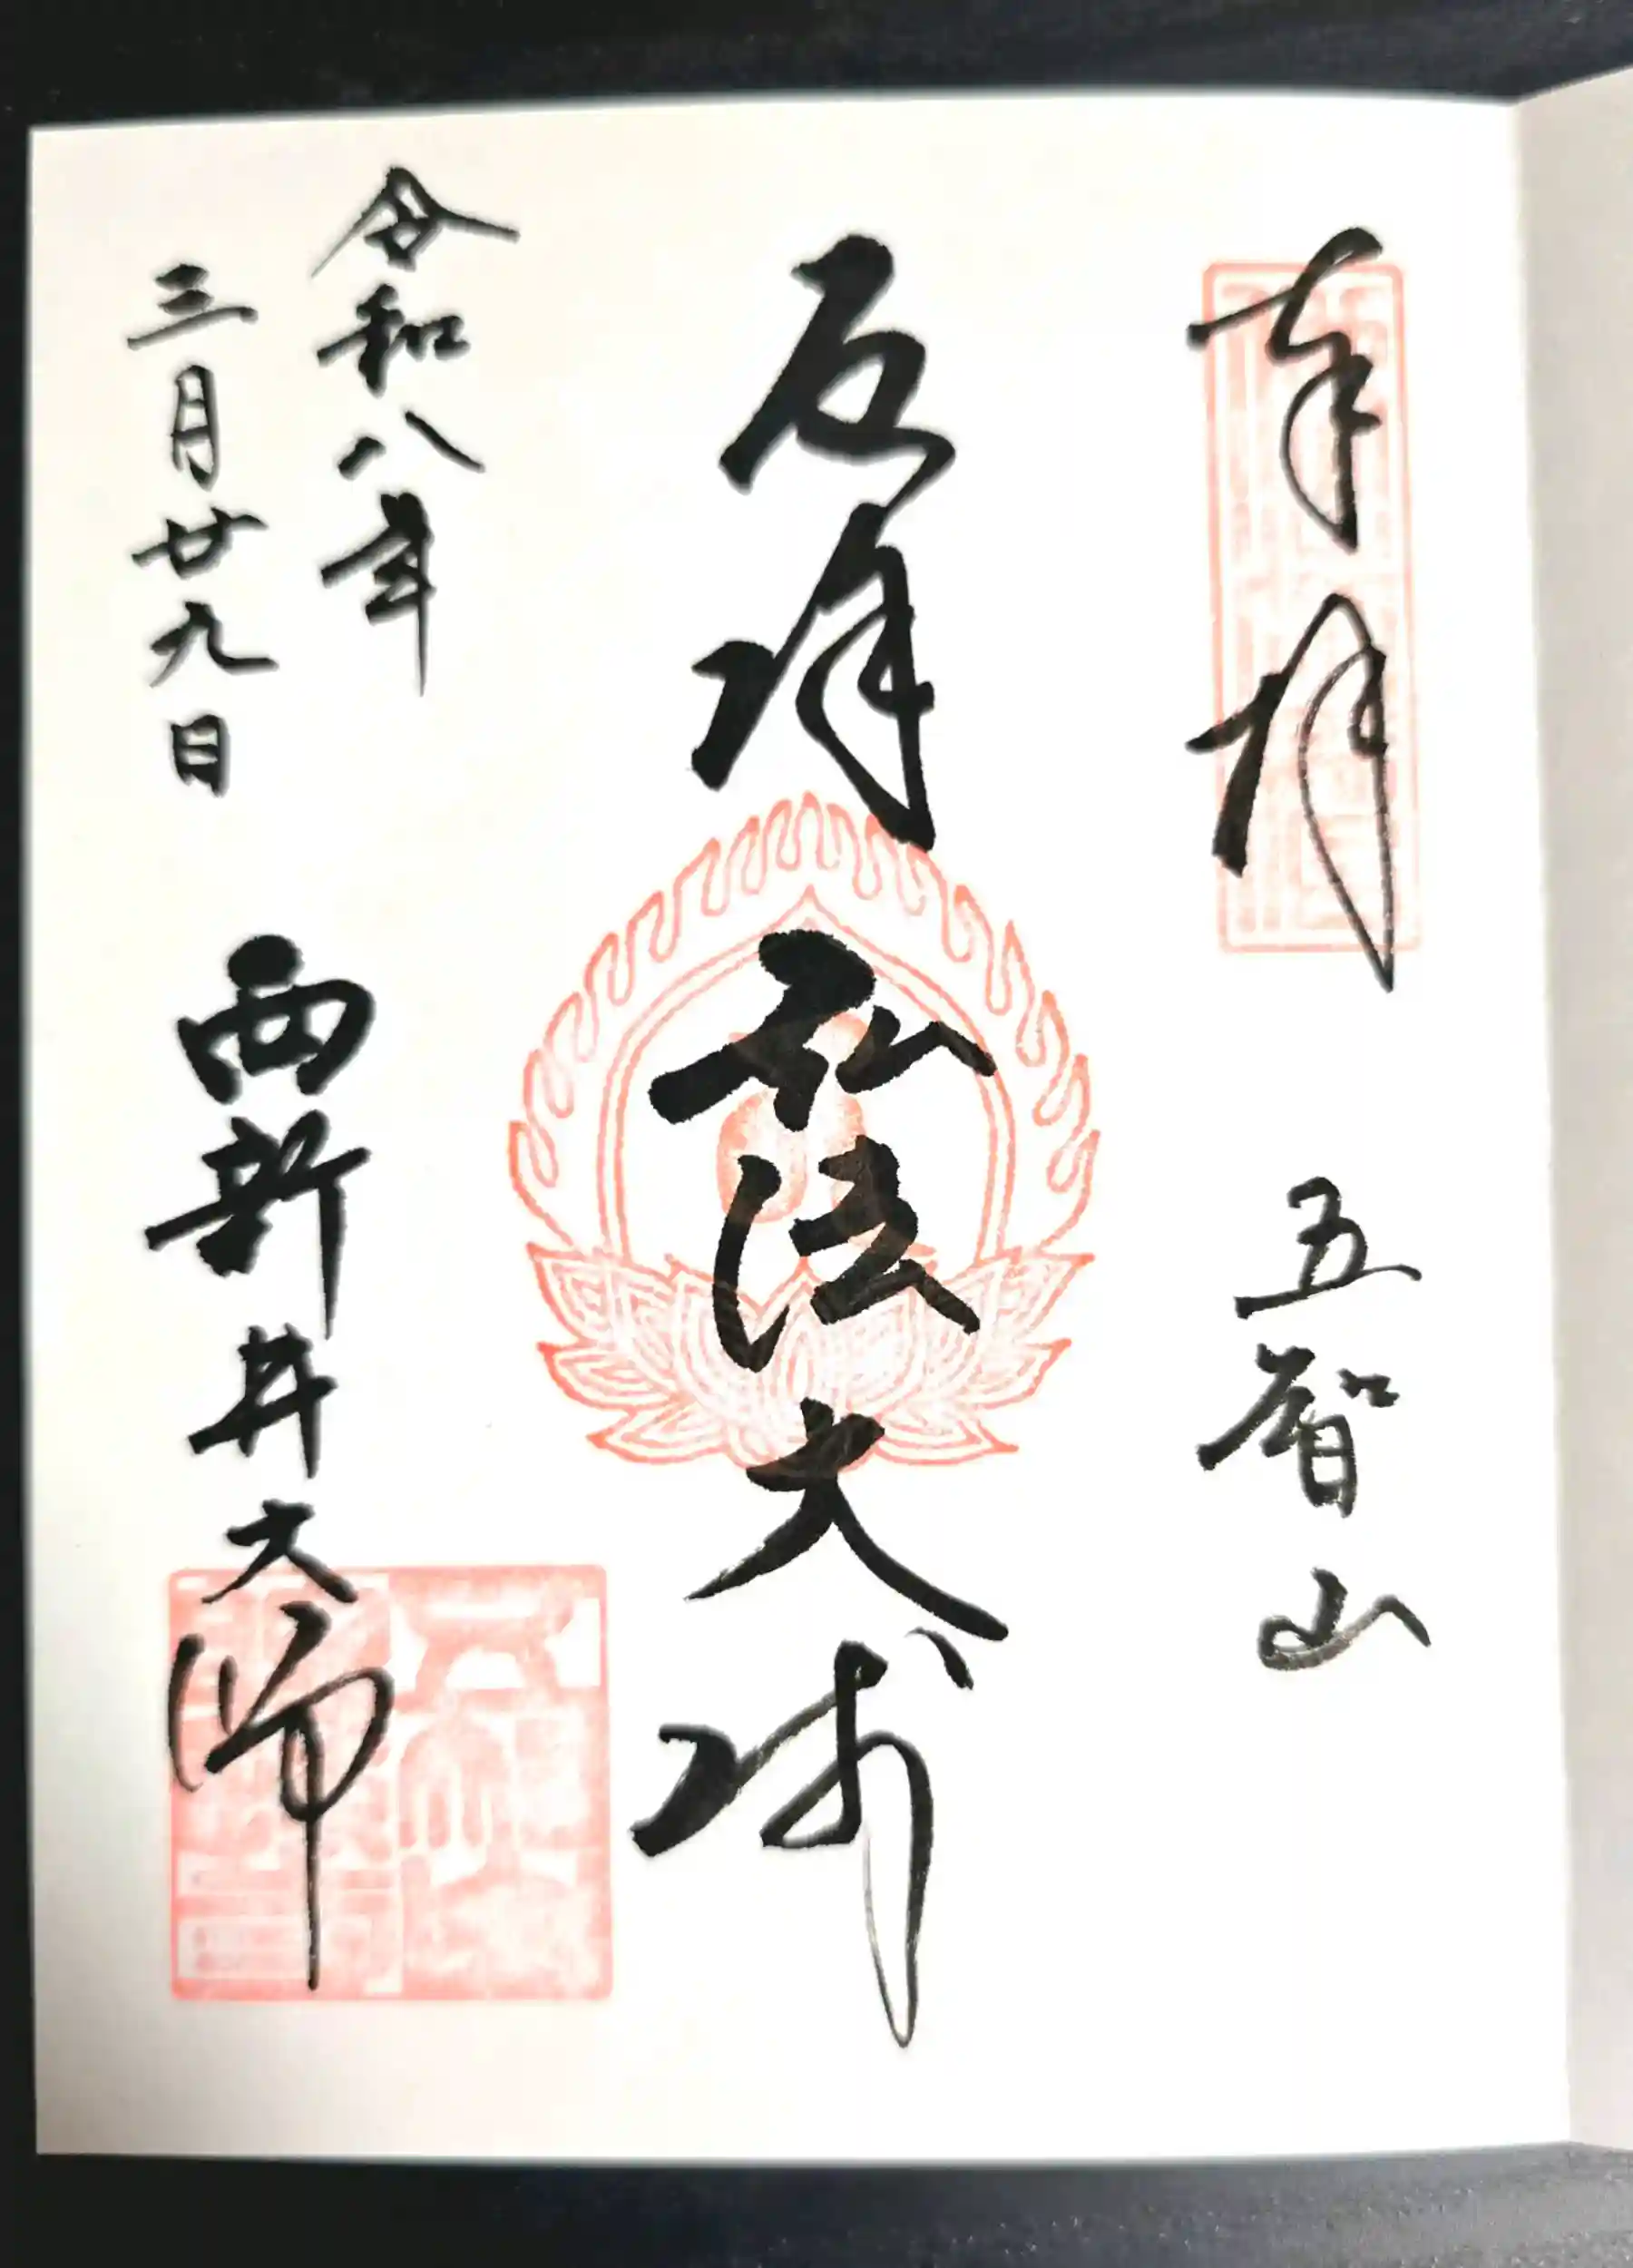 奉拝 五智山
厄除 弘法大師
令和八年
三月廿九日
西新井大師